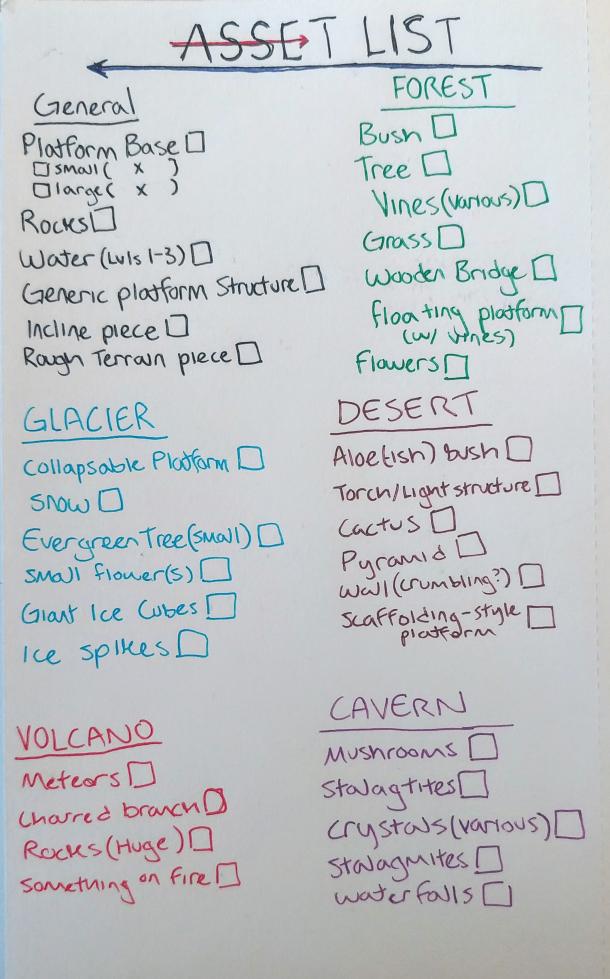 ASSET LIST
General
Platform Base
small( x )
large( x )
Rocks
Water (Lvls 1-3)
Generic platform Structure
Incline piece
Rough Terrain piece
FOREST
Bush
Tree
Vines(various)
Grass
Wooden Bridge
floating platform
(w/ vines)
flowers
GLACIER
Collapsable Platform
Snow
Evergreen Tree(small)
Small flower(s)
Giant Ice Cubes
Ice spikes
DESERT
Aloe(ish) bush
Torch/Light structure
Cactus
Pyramid
Wall(crumbling?)
Scaffolding-style
platform
VOLCANO
Meteors
Charred branch
Rocks(Huge)
Something on fire
CAVERN
Mushrooms
Stalagtites
Crystals(various)
Stalagmites
Waterfalls